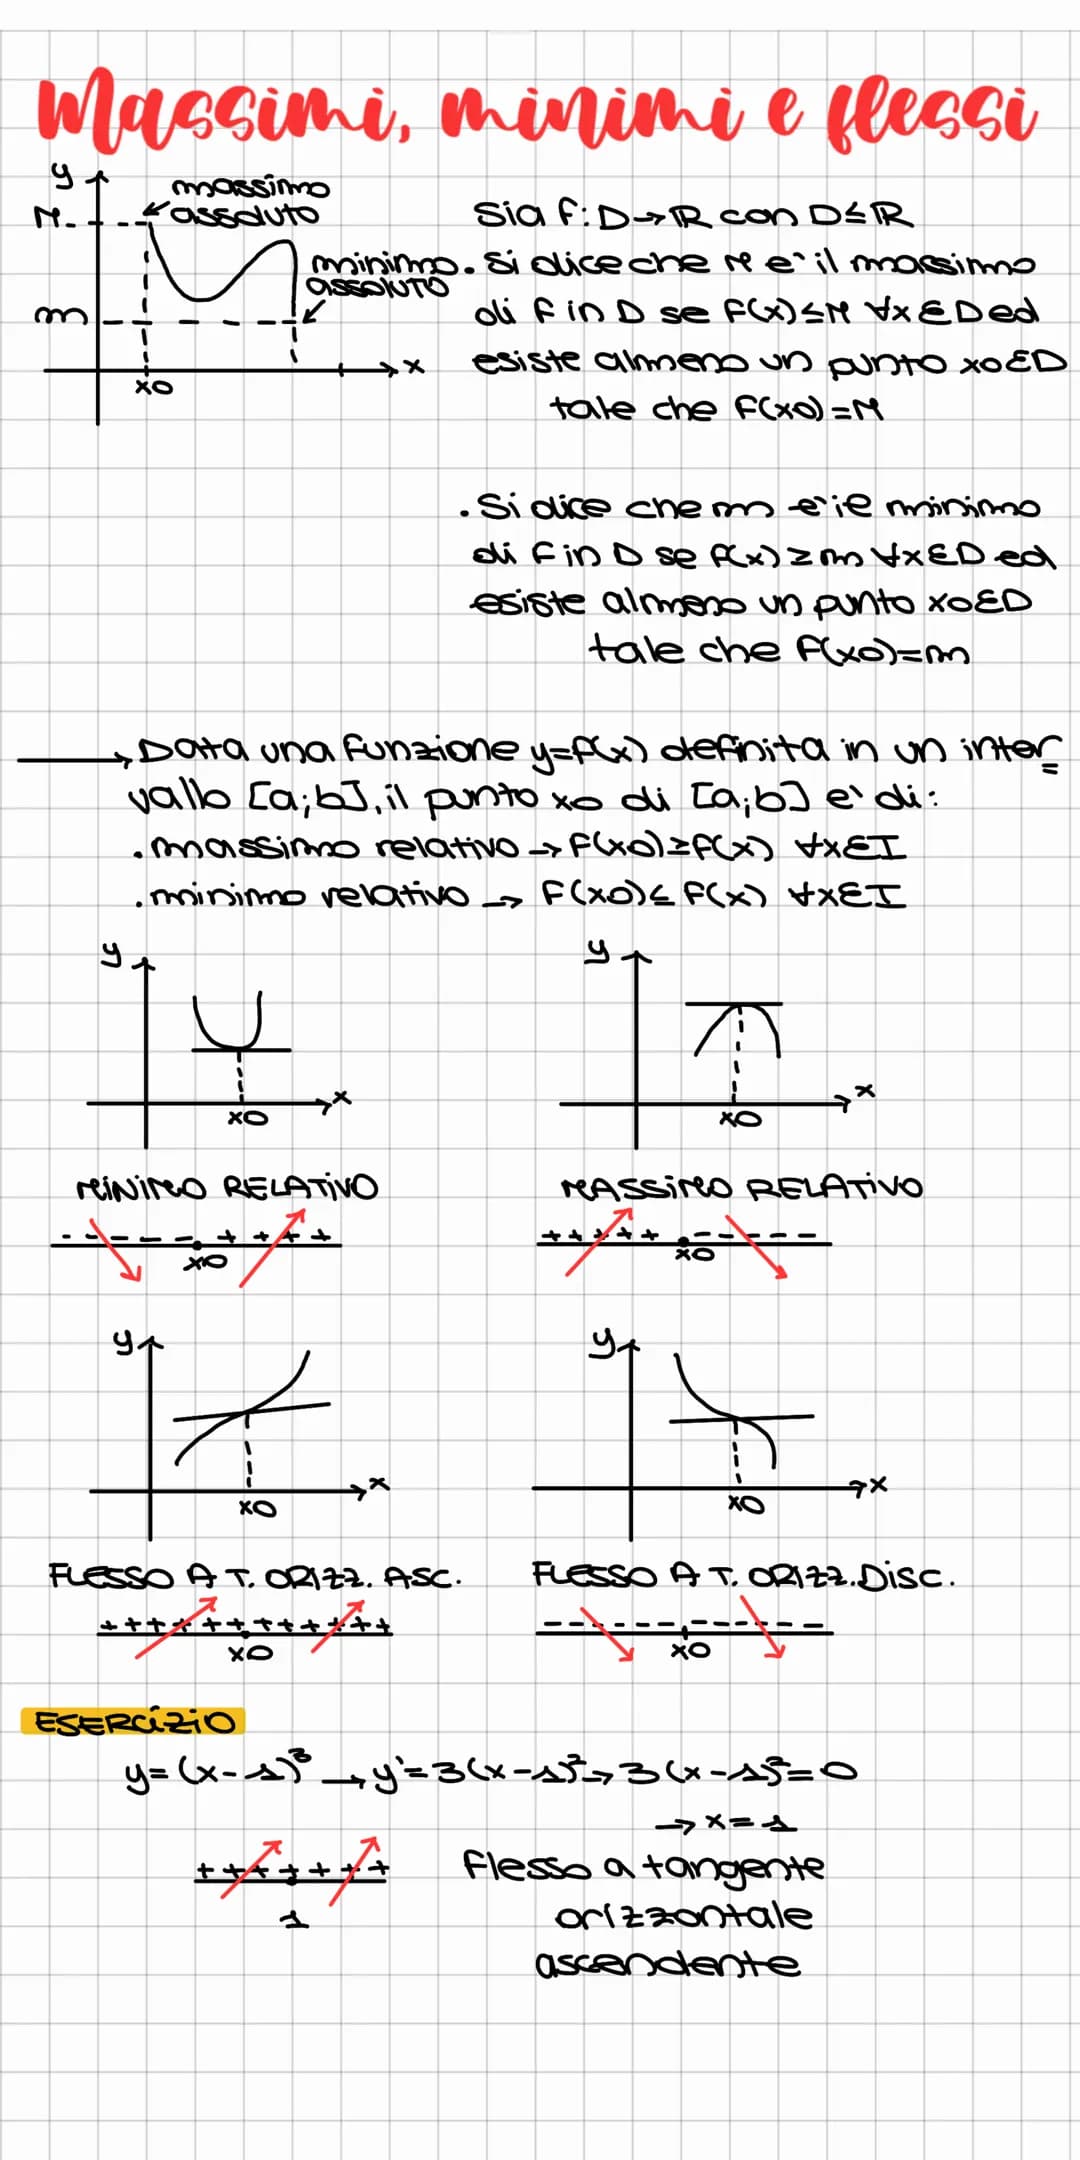 Massimi, minimi e flessi
y
massimo
M
assoluto
minimo
assoluto
m
x
x0
Sia f: D→ℝ con D≤ℝ
. Si dice che M e' il massimo
di f in D se f(x)≤M ∀x∈D ed
esiste almeno un punto x0∈D
tale che f(x0)=M
. Si dice che m e' il minimo
di f in D se f(x)≥m ∀x∈D ed
esiste almeno un punto x0∈D
tale che f(x0)=m
→ Data una funzione y=f(x) definita in un inter
vallo [a;b], il punto x0 di [a;b] e' di:
. massimo relativo → f(x0)≥f(x) ∀x∈I
. minimo relativo → f(x0)≤ f(x) ∀x∈I
y
x
x0
y
x
x0
MINIMO RELATIVO
MASSIMO RELATIVO
- - - - - + + + +
x0
+ + + + + - - - - -
x0
y
x
x0
y
x
x0
FLESSO A T. ORIZZ. ASC.
FLESSO A T. ORIZZ. DISC.
+ + + + + + + + + + + + +
x0
- - - - - - - - - - -
x0
ESERCIZIO
y=(x-1)³ → y'=3(x-1)² → 3(x-1)²=0
→ x=1
+ + + + + + +
1
Flesso a tangente
orizzontale
ascendente